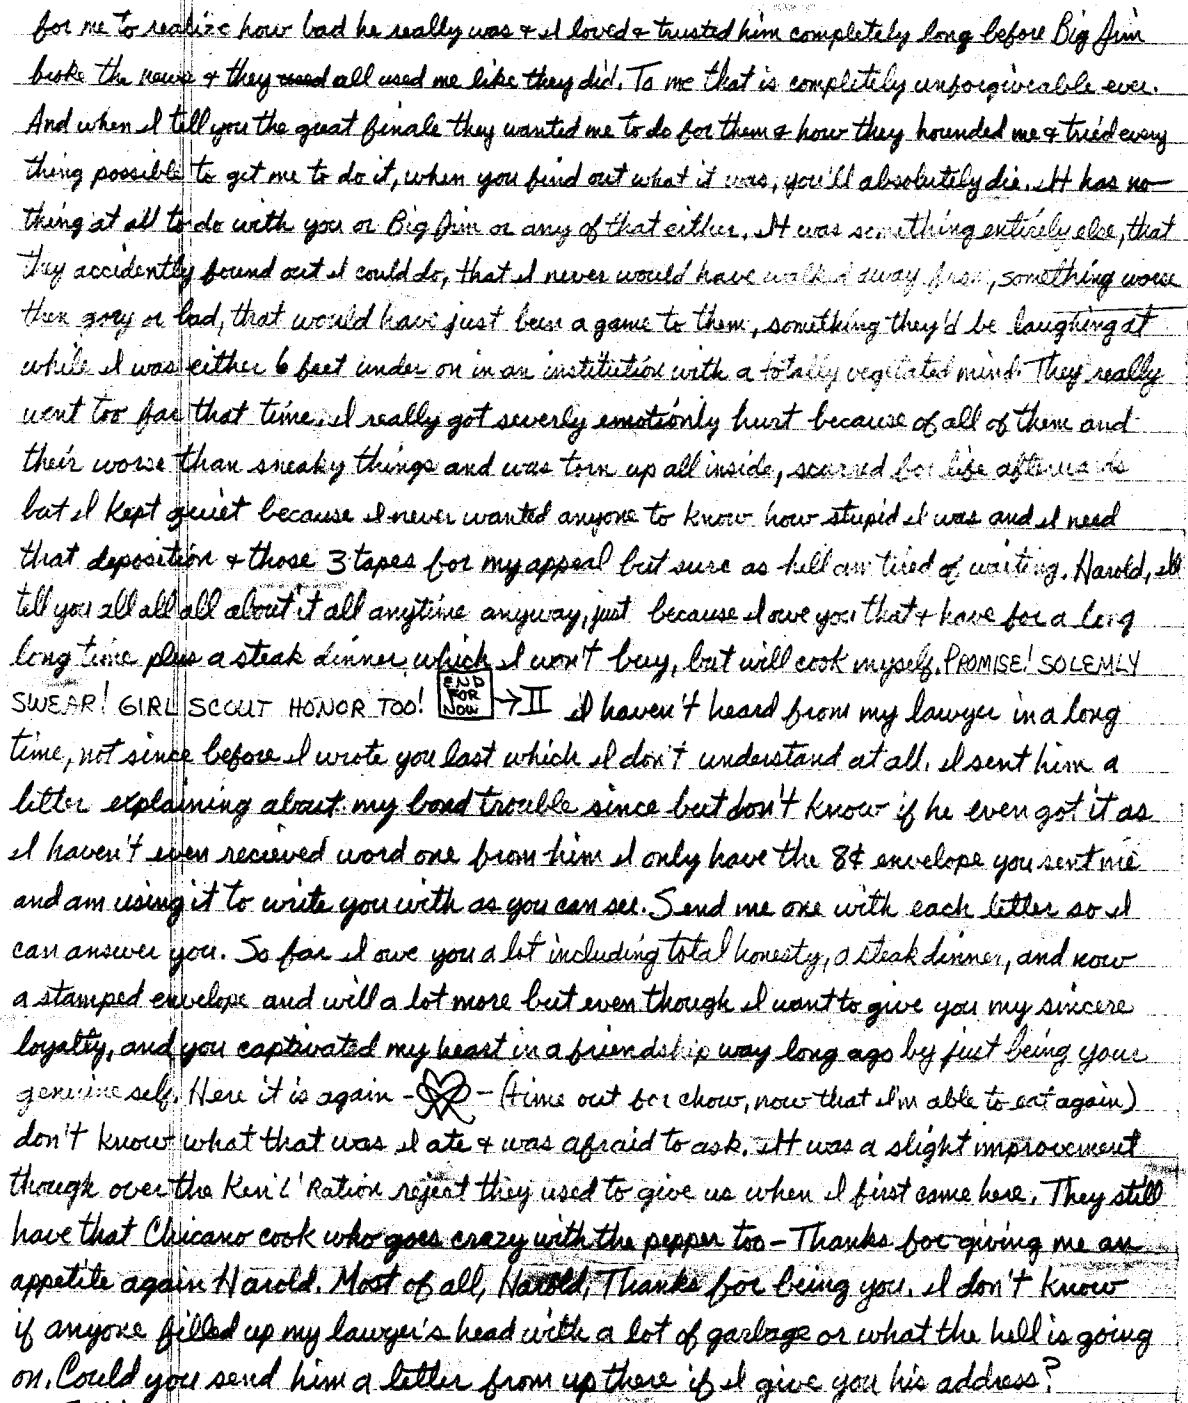 for me to realize how bad he really was & I loved & trusted him completely long before Big Jim
broke the news & they used all used me like they did. To me that is completely unforgiveable ever.
And when I tell you the great finale they wanted me to do for them & how they hounded me & tried every
thing possible to get me to do it, when you find out what it was, you'll absolutely die. It has no
thing at all to do with you or Big Jim or any of that either. It was something entirely else, that
they accidently found out I could do, that I never would have walked away from, something worse
then gory or bad, that would have just been a game to them, something they'd be laughing at
while I was either 6 feet under on in an institution with a totally vegitated mind. They really
went too far that time. I really got severly emotionly hurt because of all of them and
their worse than sneaky things and was torn up all inside, scarred for life afterwards
but I kept quiet because I never wanted anyone to know how stupid I was and I need
that deposition & those 3 tapes for my appeal but sure as hell am tired of waiting. Harold, I'll
tell you all all all about it all anytime anyway, just because I owe you that & have for a long
long time plus a steak dinner which I won't buy, but will cook myself. PROMISE! SOLEMLY
SWEAR! GIRL SCOUT HONOR TOO! END FOR NOW → II I haven't heard from my lawyer in a long
time, not since before I wrote you last which I don't understand at all. I sent him a
letter explaining about my bond trouble since but don't know if he even got it as
I haven't even recieved word one from him I only have the 8¢ envelope you sent me
and am using it to write you with as you can see. Send me one with each letter so I
can answer you. So far I owe you a lot including total honesty, a steak dinner, and now
a stamped envelope and will a lot more but even though I want to give you my sincere
loyalty, and you captivated my heart in a friendship way long ago by just being your
genuine self. Here it is again - - (time out for chow, now that I'm able to eat again)
don't know what that was I ate & was afraid to ask. It was a slight improvement
though over the Ken'L' Ration reject they used to give us when I first came here. They still
have that Chicano cook who goes crazy with the pepper too - Thanks for giving me an
appetite again Harold. Most of all, Harold, Thanks for being you. I don't know
if anyone filled up my lawyer's head with a lot of garbage or what the hell is going
on. Could you send him a letter from up there if I give you his address?